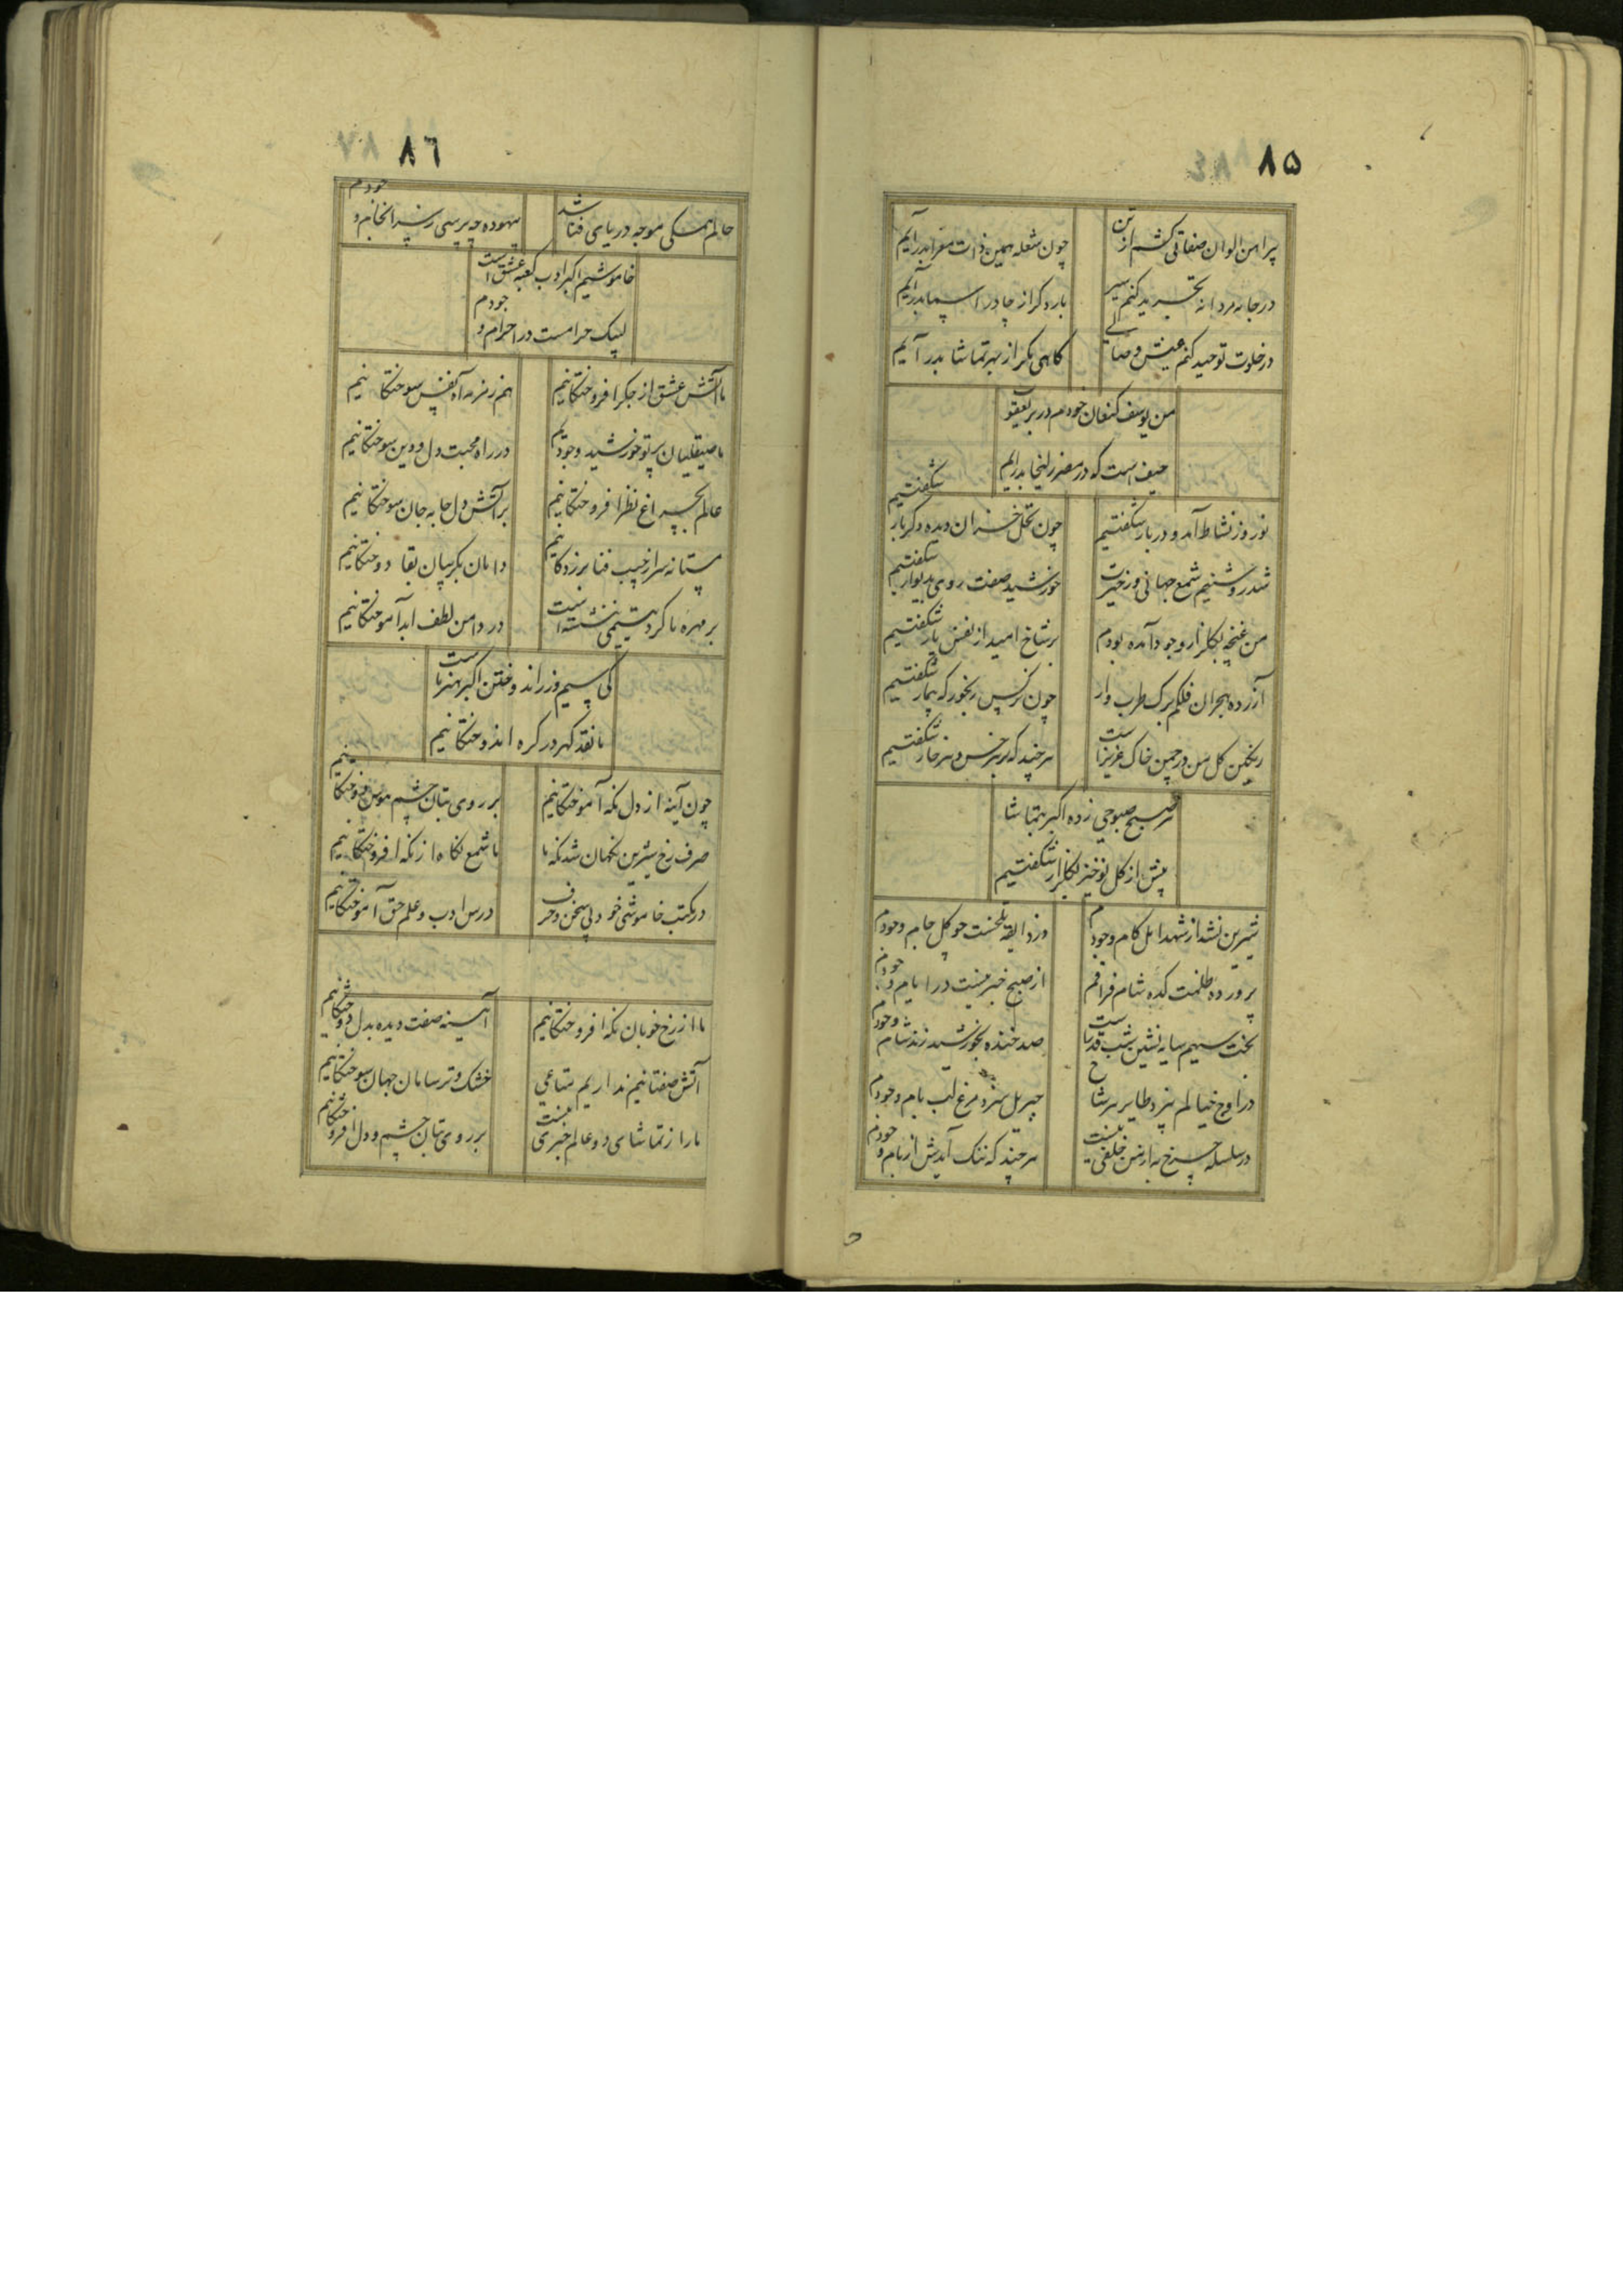 ۸۵
پیراهن الوان صفاتی کشم از تن
چون شعله همین ذات معرا بدر آیم
در جامه مردانه تجرید کنم سیر
بار دگر از چادر اسما بدر آیم
در خلوت توحید کنم عیش وصالی
گاهی مگر از بهر تماشا بدر آیم
من یوسف کنعان خودم در بر یعقوب
حیف است که در مصر زلیخا بدر آیم
نوروز نشاط آمد و دربار شکفتیم
چون نخل خزان دیده دگربار شکفتیم
شد روشنیم شمع جهانی و ز حیرت
خورشید صفت روی بدیوار شکفتیم
من غنچه بگلزار وجود آمده بودم
بر شاخ امید از نفس یار شکفتیم
آزرده هجران فلکم برگ طرب وار
چون نرگس رنجور که بیمار شکفتیم
رنگین گل من در چمن خاک عزیزانست
هر چند که بر هر خس و هر خار شکفتیم
هر صبح صبوحی زده اکبر بتماشا
پیش از گل نوخیز بگلزار شکفتیم
شیرین نشد از شهد امل کام وجودم
وز ذایقه تلخست چو گل جام وجودم
پرورده ظلمت کده شام فراقم
از صبح خبر نیست در ایام وجودم
بخت سیهم سایه نشین شب قدر است
صد خنده بخورشید زند شام وجودم
در اوج خیالم نپرد طایر هر شاخ
جبریل سزد مرغ لب بام وجودم
در سلسله چرخ به از من خلفی نیست
هر چند که ننگ آیدش از نام وجودم
۸۶
حالم همگی موجه دریای فنا شد
بیهوده چه پرسی ز سرانجام وجودم
خاموشیم اکبر ادب کعبه عشق است
لبیک حرامست در احرام وجودم
ما آتش عشق از جگر افروختگانیم
هم زمزمه آه نفس سوختگانیم
ما صیقلیان پرتو خورشید وجودیم
در راه محبت دل و دین سوختگانیم
عالم بچراغ نظر افروختگانیم
بر آتش دل جابه جان سوختگانیم
مستانه سر از جیب فنا بر زدگانیم
دامان بگریبان بقا دوختگانیم
بر مهره ما گرد یتیمی ننشسته است
در دامن لطف ابد آموختگانیم
کی سیم و زر اندوختن اکبر هنر ماست
ما نقد گهر در گره اندوختگانیم
چون آینه از دل نگه آموختگانیم
بر روی بتان چشم هوس دوختگانیم
صرف رخ شیرین نگهان شد نگه ما
ما شمع نگاه از نگه افروختگانیم
در مکتب خاموشی خود بی سخن و حرف
درس ادب و علم حق آموختگانیم
ما از رخ خوبان نگه افروختگانیم
آیینه صفت دیده بدل دوختگانیم
آتش صفتانیم نداریم متاعی
خشک و تر سامان جهان سوختگانیم
ما را ز تماشای دو عالم خبری نیست
بر روی بتان چشم و دل افروختگانیم